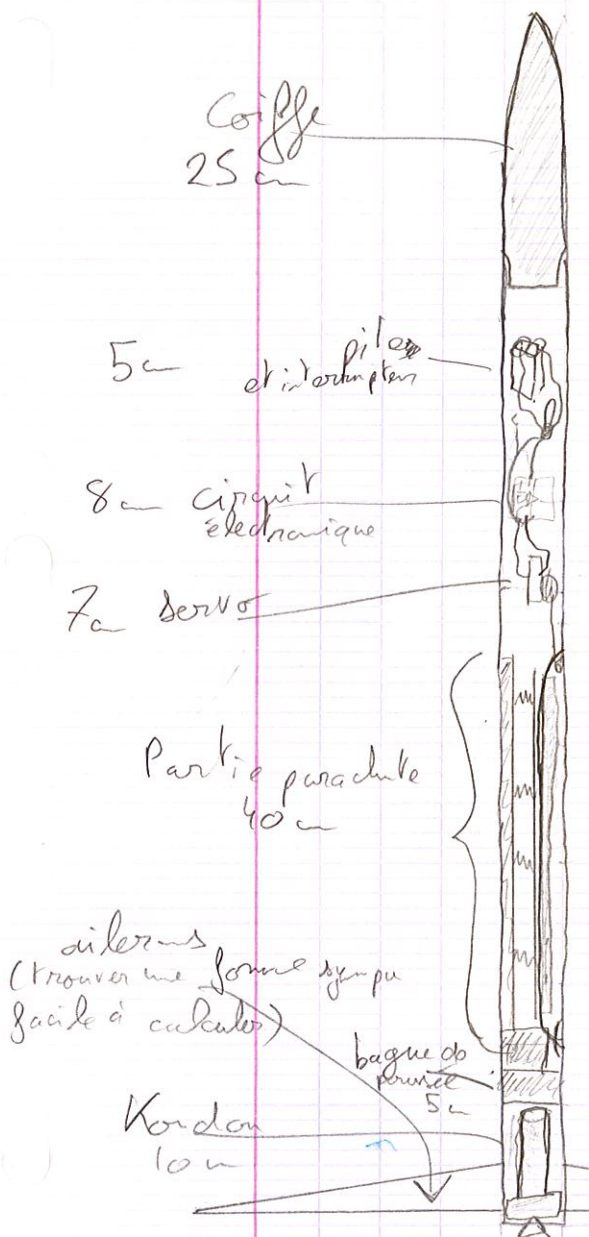 Coiffe
25 cm
piles
5 cm
et interrupteur
8 cm circuit
électronique
7 cm servo
Partie parachute
40 cm
ailerons
(trouver une forme sympa
facile à calculer)
bague de
poussée
5 cm
Kordon
10 cm